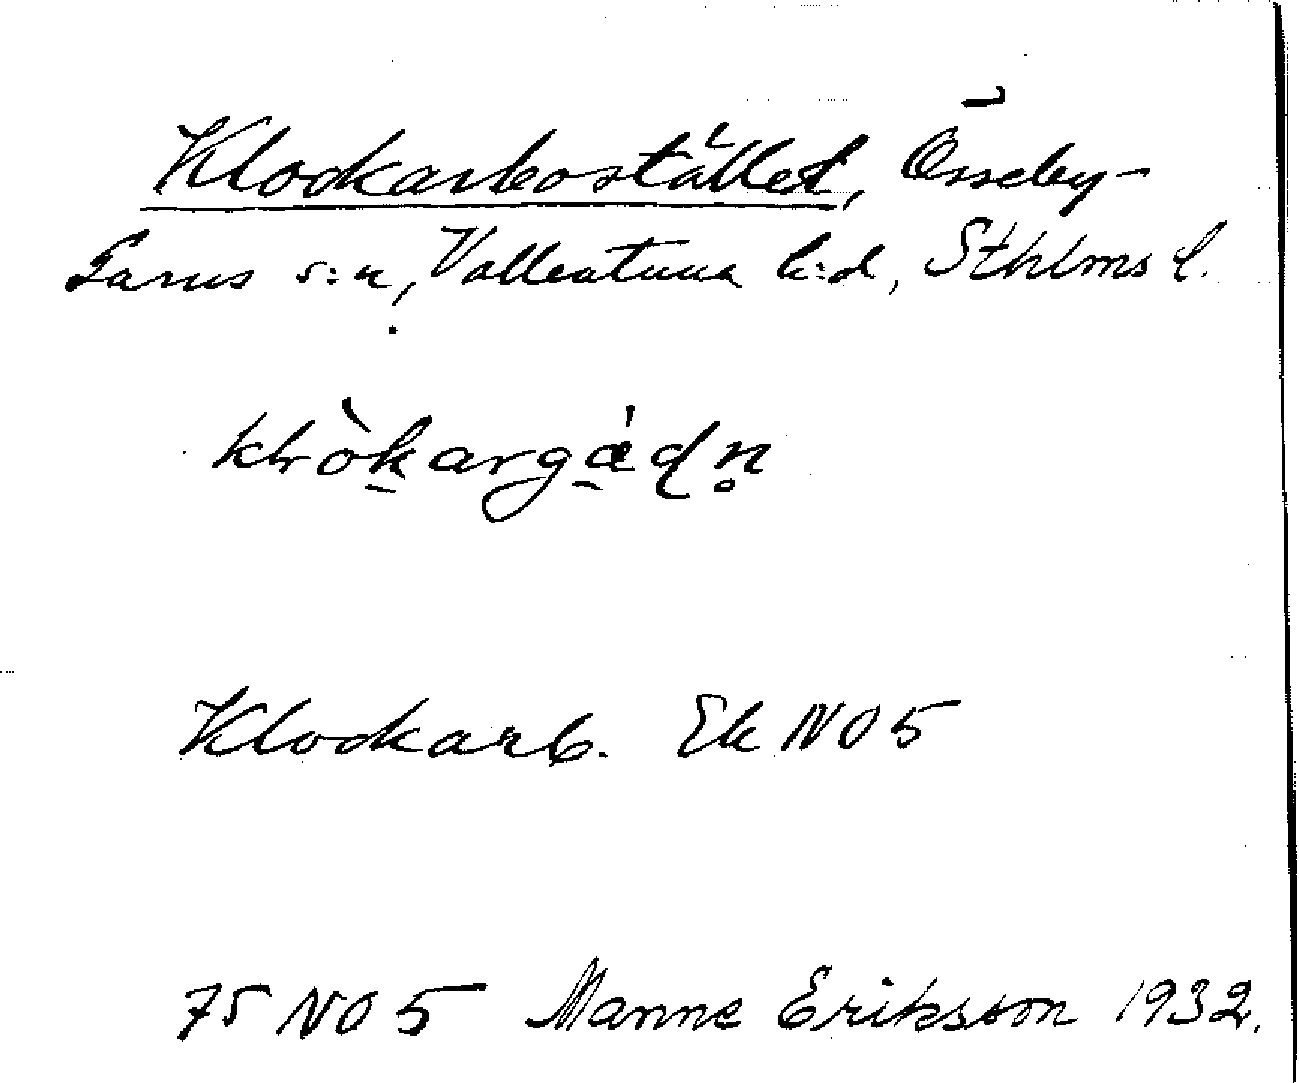 Klockarbostället, Össeby-
Garns s:n, Vallentuna h:d, Sthlms l.
klòkargádn̥
Klockarb. Ek NO 5
75 NO 5 Manne Eriksson 1932.